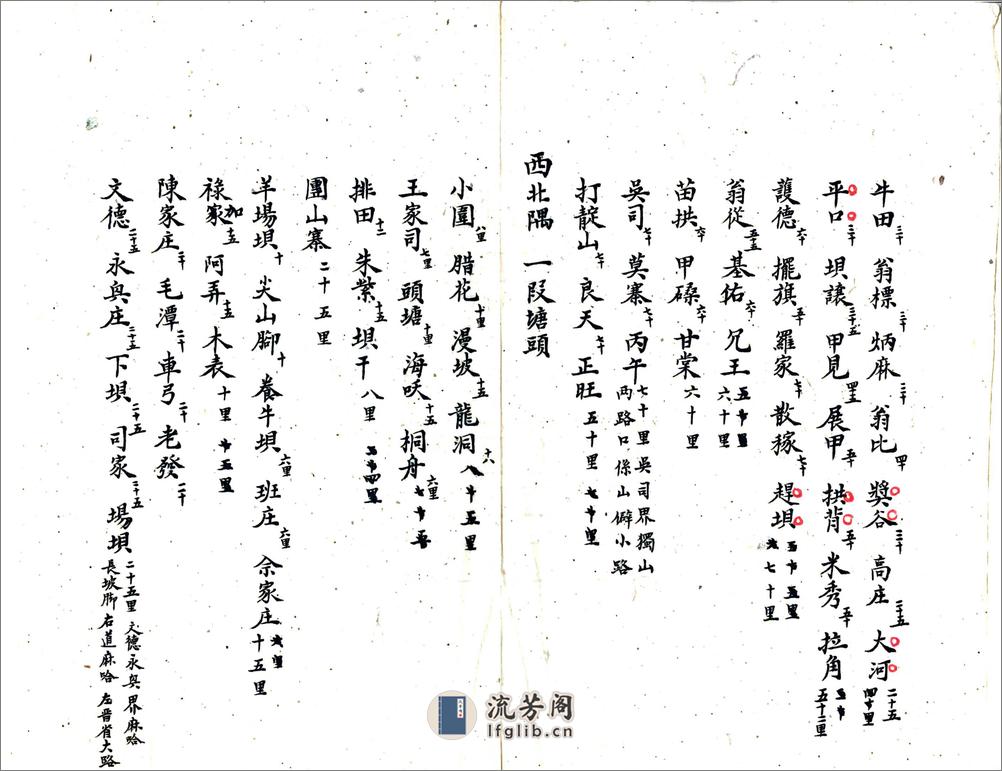 牛田三十 翁標三十 炳麻三十 翁比四十 獎谷三十 高庄二十五 大河二十五 四十里
平口三十 坝讓三十五 甲見四十五 展甲五十 拱背五十 米秀五十 拉角五十二里
護德六十 擺旗五十 羅家七十 散稼七十 趕坝五十五里 七十里
翁從五十五 基佑六十 兄王五十里 六十里
苗拱六十 甲磉六十 甘棠六十里
吳司七十 莫寨七十 丙午七十里吳司界獨山 両路口係山僻小路
打靛山七十 良天七十 正旺五十里 七十里
西北隅一段塘頭
小圍八里 腊花十里 漫坡十五 龍洞十六 八十五里
王家司七里 頭塘十里 海吠十五 桐舟六里
排田十二 朱紫坝十五 干八里
團山寨二十五里
羊場坝十 尖山腳十 養牛坝六里 班庄六里 佘家庄十五里
祿家加十五 阿弄十五 木表十里 十五里
陳家庄二十 毛潭二十 車弓二十 老發二十
文德二十五 永奥庄二十五 下坝二十五 司家二十五 場坝二十五里文德永奥界麻哈 長坡脚右道麻哈 左晋省大路
流芳阁
lfglib.cn